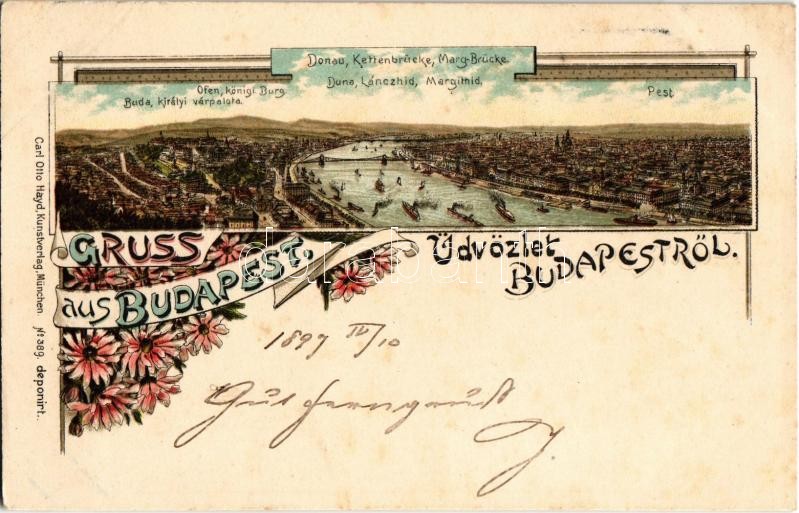 Donau, Kettenbrücke, Marg-Brücke.
Duna, Lánczhid, Margithid,
Ofen, königl. Burg.
Buda, királyi várpalota.
Pest
GRUSS
aus BUDAPEST.
Üdvözlet
BUDAPESTRÖL.
Carl Otto Hayd, Kunstverlag, München. No 389. deponirt.
darabanth
1897 IV/10
Gut
J.